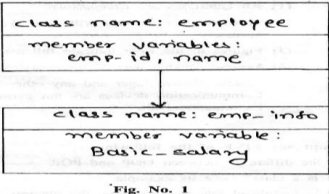 class name: employee
member variables:
emp-id, name
class name: emp-info
member variable:
Basic-salary
Fig. No. 1